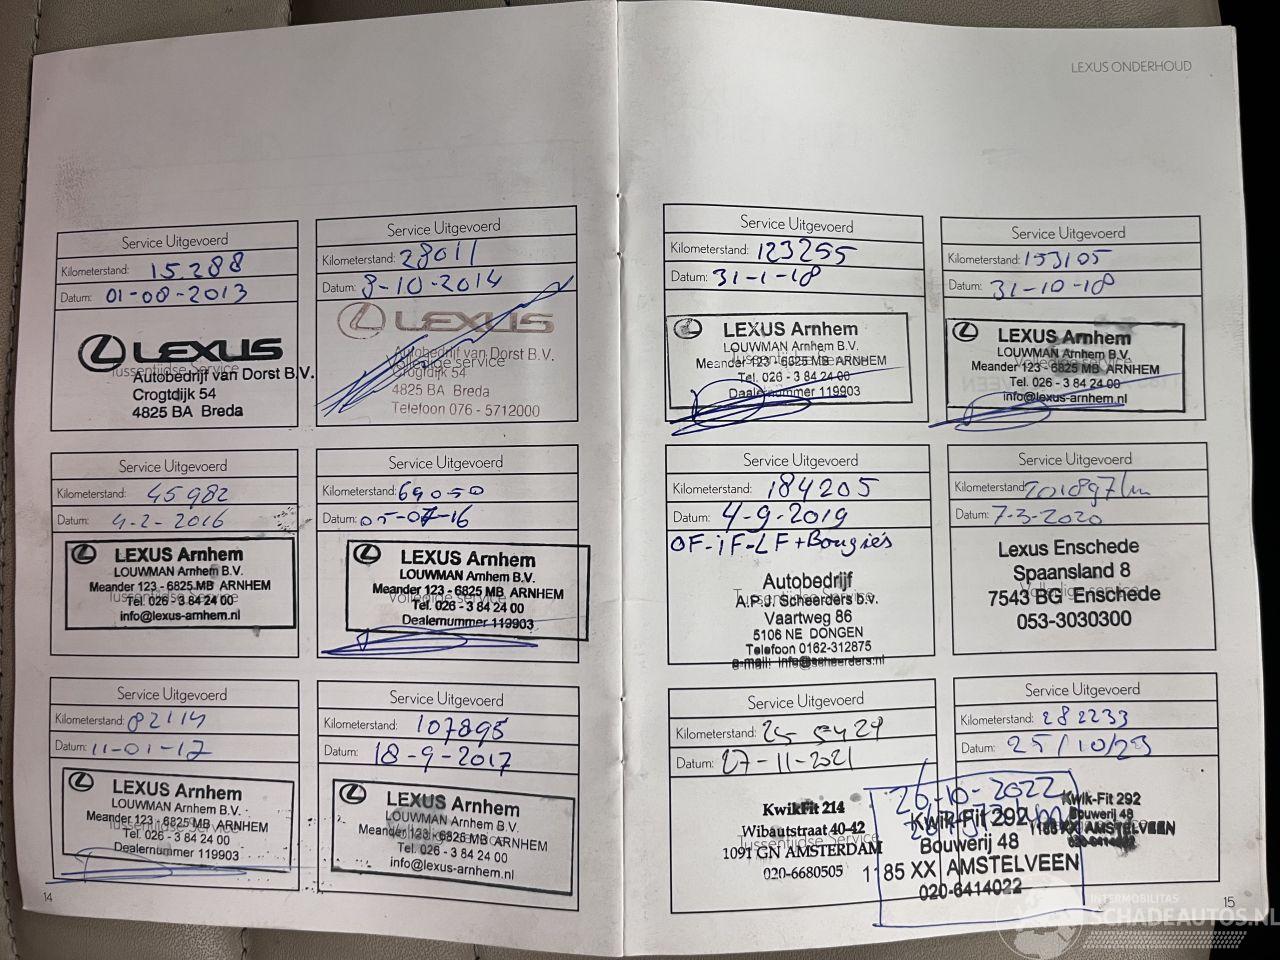 LEXUS ONDERHOUD
Service Uitgevoerd
Kilometerstand: 15.288
Datum: 01-08-2013
LEXUS
Tussentijdse Service
Autobedrijf van Dorst B.V.
Crogtdijk 54
4825 BA Breda
Service Uitgevoerd
Kilometerstand: 28011
Datum: 8-10-2014
LEXUS
Autobedrijf van Dorst B.V.
Volledige service
Crogtdijk 54
4825 BA Breda
Telefoon 076 - 5712000
Service Uitgevoerd
Kilometerstand: 45982
Datum: 4-2-2016
LEXUS Arnhem
LOUWMAN Arnhem B.V.
Meander 123 - 6825 MB ARNHEM
Tussentijdse Service
Tel. 026 - 3 84 24 00
info@lexus-arnhem.nl
Service Uitgevoerd
Kilometerstand: 69050
Datum: 05-07-16
LEXUS Arnhem
LOUWMAN Arnhem B.V.
Meander 123 - 6825 MB ARNHEM
Volledige service
Tel. 026 - 3 84 24 00
Dealernummer 119903
Service Uitgevoerd
Kilometerstand: 82114
Datum: 11-01-17
LEXUS Arnhem
LOUWMAN Arnhem B.V.
Meander 123 - 6825 MB ARNHEM
Tussentijdse Service
Tel. 026 - 3 84 24 00
Dealernummer 119903
Service Uitgevoerd
Kilometerstand: 107895
Datum: 18-9-2017
LEXUS Arnhem
LOUWMAN Arnhem B.V.
Meander 123 - 6825 MB ARNHEM
Volledige service
Tel. 026 - 3 84 24 00
info@lexus-arnhem.nl
14
Service Uitgevoerd
Kilometerstand: 123255
Datum: 31-1-18
LEXUS Arnhem
LOUWMAN Arnhem B.V.
Tussentijdse Service
Meander 123 - 6825 MB ARNHEM
Tel. 026 - 3 84 24 00
Dealernummer 119903
Service Uitgevoerd
Kilometerstand: 153105
Datum: 31-10-18
LEXUS Arnhem
LOUWMAN Arnhem B.V.
Volledige service
Meander 123 - 6825 MB ARNHEM
Tel. 026 - 3 84 24 00
info@lexus-arnhem.nl
Service Uitgevoerd
Kilometerstand: 184205
Datum: 4-9-2019
OF-iF-LF+Bougies
Autobedrijf
Tussentijdse Service
A.P.J. Scheerders b.v.
Vaartweg 86
5106 NE DONGEN
Telefoon 0162-312875
e-mail: info@scheerders.nl
Service Uitgevoerd
Kilometerstand: 201897km
Datum: 7-3-2020
Lexus Enschede
Spaansland 8
Volledige service
7543 BG Enschede
053-3030300
Service Uitgevoerd
Kilometerstand: 25 5429
Datum: 27-11-2021
KwikFit 214
Wibautstraat 40-42
Tussentijdse Service
1091 GN AMSTERDAM
020-6680505
Service Uitgevoerd
Kilometerstand: 282233
Datum: 25/10/23
26-10-2022
Kwik-Fit 292
Bouwerij 48
1185 XX AMSTELVEEN
020-6414022
Kwik-Fit 292
Bouwerij 48
1185 XX AMSTELVEEN
020-6414022
15
INTERMOBILITAS
SCHADEAUTOS.NL